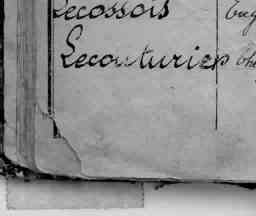 Lecossois
Lecouturier